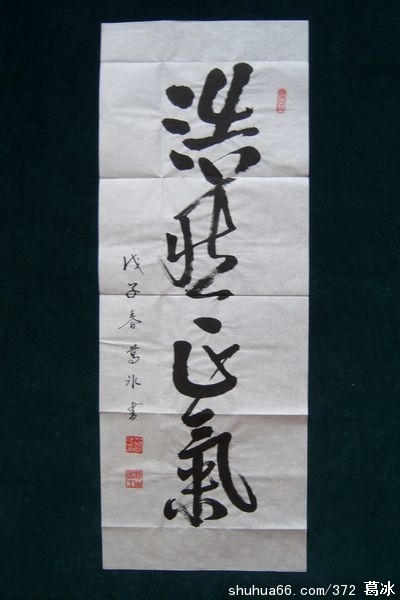 浩然正氣
戊子春葛冰書
shuhua66.com/372 葛冰